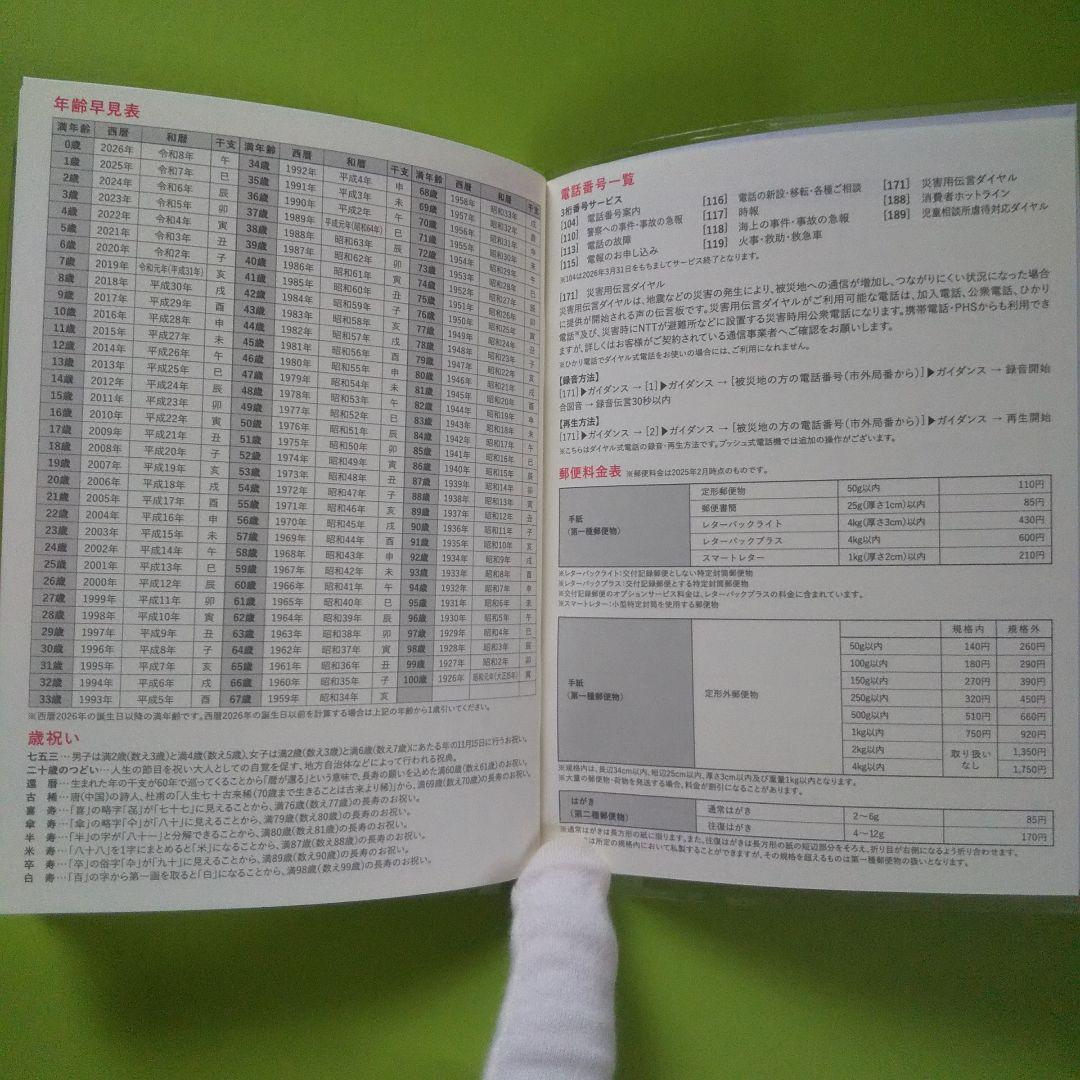 年齢早見表
満年齢 西暦 和暦 干支 満年齢 西暦 和暦 干支 満年齢 西暦 和暦 干支
0歳 2026年 令和8年 午 34歳 1992年 平成4年 申 68歳 1958年 昭和33年 戌
1歳 2025年 令和7年 巳 35歳 1991年 平成3年 未 69歳 1957年 昭和32年 酉
2歳 2024年 令和6年 辰 36歳 1990年 平成2年 午 70歳 1956年 昭和31年 申
3歳 2023年 令和5年 卯 37歳 1989年 平成元年(昭和64年) 巳 71歳 1955年 昭和30年 未
4歳 2022年 令和4年 寅 38歳 1988年 昭和63年 辰 72歳 1954年 昭和29年 午
5歳 2021年 令和3年 丑 39歳 1987年 昭和62年 卯 73歳 1953年 昭和28年 巳
6歳 2020年 令和2年 子 40歳 1986年 昭和61年 寅 74歳 1952年 昭和27年 辰
7歳 2019年 令和元年(平成31年) 亥 41歳 1985年 昭和60年 丑 75歳 1951年 昭和26年 卯
8歳 2018年 平成30年 戌 42歳 1984年 昭和59年 子 76歳 1950年 昭和25年 寅
9歳 2017年 平成29年 酉 43歳 1983年 昭和58年 亥 77歳 1949年 昭和24年 丑
10歳 2016年 平成28年 申 44歳 1982年 昭和57年 戌 78歳 1948年 昭和23年 子
11歳 2015年 平成27年 未 45歳 1981年 昭和56年 酉 79歳 1947年 昭和22年 亥
12歳 2014年 平成26年 午 46歳 1980年 昭和55年 申 80歳 1946年 昭和21年 戌
13歳 2013年 平成25年 巳 47歳 1979年 昭和54年 未 81歳 1945年 昭和20年 酉
14歳 2012年 平成24年 辰 48歳 1978年 昭和53年 午 82歳 1944年 昭和19年 申
15歳 2011年 平成23年 卯 49歳 1977年 昭和52年 巳 83歳 1943年 昭和18年 未
16歳 2010年 平成22年 寅 50歳 1976年 昭和51年 辰 84歳 1942年 昭和17年 午
17歳 2009年 平成21年 丑 51歳 1975年 昭和50年 卯 85歳 1941年 昭和16年 巳
18歳 2008年 平成20年 子 52歳 1974年 昭和49年 寅 86歳 1940年 昭和15年 辰
19歳 2007年 平成19年 亥 53歳 1973年 昭和48年 丑 87歳 1939年 昭和14年 卯
20歳 2006年 平成18年 戌 54歳 1972年 昭和47年 子 88歳 1938年 昭和13年 寅
21歳 2005年 平成17年 酉 55歳 1971年 昭和46年 亥 89歳 1937年 昭和12年 丑
22歳 2004年 平成16年 申 56歳 1970年 昭和45年 戌 90歳 1936年 昭和11年 子
23歳 2003年 平成15年 未 57歳 1969年 昭和44年 酉 91歳 1935年 昭和10年 亥
24歳 2002年 平成14年 午 58歳 1968年 昭和43年 申 92歳 1934年 昭和9年 戌
25歳 2001年 平成13年 巳 59歳 1967年 昭和42年 未 93歳 1933年 昭和8年 酉
26歳 2000年 平成12年 辰 60歳 1966年 昭和41年 午 94歳 1932年 昭和7年 申
27歳 1999年 平成11年 卯 61歳 1965年 昭和40年 巳 95歳 1931年 昭和6年 未
28歳 1998年 平成10年 寅 62歳 1964年 昭和39年 辰 96歳 1930年 昭和5年 午
29歳 1997年 平成9年 丑 63歳 1963年 昭和38年 卯 97歳 1929年 昭和4年 巳
30歳 1996年 平成8年 子 64歳 1962年 昭和37年 寅 98歳 1928年 昭和3年 辰
31歳 1995年 平成7年 亥 65歳 1961年 昭和36年 丑 99歳 1927年 昭和2年 卯
32歳 1994年 平成6年 戌 66歳 1960年 昭和35年 子 100歳 1926年 昭和元年(大正15年) 寅
33歳 1993年 平成5年 酉 67歳 1959年 昭和34年 亥
※西暦2026年の誕生日以降の満年齢です。西暦2026年の誕生日以前を計算する場合は上記の年齢から1歳引いてください。
歳祝い
七五三…男子は満2歳(数え3歳)と満4歳(数え5歳)、女子は満2歳(数え3歳)と満6歳(数え7歳)にあたる年の11月15日に行うお祝い。
二十歳のつどい…人生の節目を祝い大人としての自覚を促す、地方自治体などによって行われる祝典。
還暦…生まれた年の干支が60年で巡ってくることから「暦が還る」という意味で、長寿の願いを込めた満60歳(数え61歳)のお祝い。
古稀…唐(中国)の詩人、杜甫の「人生七十古来稀(70歳まで生きることは古来より稀)」から、満69歳(数え70歳)の長寿のお祝い。
喜寿…「喜」の略字「㐂」が「七十七」に見えることから、満76歳(数え77歳)の長寿のお祝い。
傘寿…「傘」の略字「仐」が「八十」に見えることから、満79歳(数え80歳)の長寿のお祝い。
半寿…「半」の字が「八十一」と分解できることから、満80歳(数え81歳)の長寿のお祝い。
米寿…「八十八」を1字にまとめると「米」になることから、満87歳(数え88歳)の長寿のお祝い。
卒寿…「卒」の俗字「卆」が「九十」に見えることから、満89歳(数え90歳)の長寿のお祝い。
白寿…「百」の字から第一画を取ると「白」になることから、満98歳(数え99歳)の長寿のお祝い。
電話番号一覧
3桁番号サービス
[104] 電話番号案内
[110] 警察への事件・事故の急報
[113] 電話の故障
[115] 電報のお申し込み
[116] 電話の新設・移転・各種ご相談
[117] 時報
[118] 海上の事件・事故の急報
[119] 火事・救助・救急車
[171] 災害用伝言ダイヤル
[188] 消費者ホットライン
[189] 児童相談所虐待対応ダイヤル
※104は2026年3月31日をもちましてサービス終了となります。
[171] 災害用伝言ダイヤル
災害用伝言ダイヤルは、地震などの災害の発生により、被災地への通信が増加し、つながりにくい状況になった場合
に提供が開始される声の伝言板です。災害用伝言ダイヤルがご利用可能な電話は、加入電話、公衆電話、ひかり
電話※及び、災害時にNTTが避難所などに設置する災害時用公衆電話になります。携帯電話・PHSからも利用でき
ますが、詳しくはお客様がご契約されている通信事業者へご確認をお願いします。
※ひかり電話でダイヤル式電話をお使いの場合には、ご利用になれません。
【録音方法】
[171]▶ガイダンス → [1]▶ガイダンス → [被災地の方の電話番号(市外局番から)]▶ガイダンス → 録音開始
合図音 → 録音伝言30秒以内
【再生方法】
[171]▶ガイダンス → [2]▶ガイダンス → [被災地の方の電話番号(市外局番から)]▶ガイダンス → 再生開始
※こちらはダイヤル式電話の録音・再生方法です。プッシュ式電話機では追加の操作がございます。
郵便料金表 ※郵便料金は2025年2月時点のものです。
手紙
(第一種郵便物)
定形郵便物 50g以内 110円
郵便書簡 25g(厚さ1cm)以内 85円
レターパックライト 4kg(厚さ3cm)以内 430円
レターパックプラス 4kg以内 600円
スマートレター 1kg(厚さ2cm)以内 210円
※レターパックライト：交付記録郵便としない特定封筒郵便物
※レターパックプラス：交付記録郵便とする特定封筒郵便物
※交付記録郵便のオプションサービス料金は、レターパックプラスの料金に含まれています。
※スマートレター：小型特定封筒を使用する郵便物
手紙
(第一種郵便物)
定形外郵便物
規格内 規格外
50g以内 140円 260円
100g以内 180円 290円
150g以内 270円 390円
250g以内 320円 450円
500g以内 510円 660円
1kg以内 750円 920円
2kg以内 取り扱いなし 1,350円
4kg以内 1,750円
※規格内は、長辺34cm以内、短辺25cm以内、厚さ3cm以内及び重量1kg以内となります。
※大量の郵便物・荷物を発送する場合、料金が割引になることがあります。
はがき
(第二種郵便物)
通常はがき 2～6g 85円
往復はがき 4～12g 170円
※通常はがきは長方形の紙に限ります。また、往復はがきは長方形の紙の短辺部分をそろえ、折り目が右側になるよう折り合わせます。
は所定の規格内において私製することができますが、その規格を超えるものは第一種郵便物の扱いとなります。